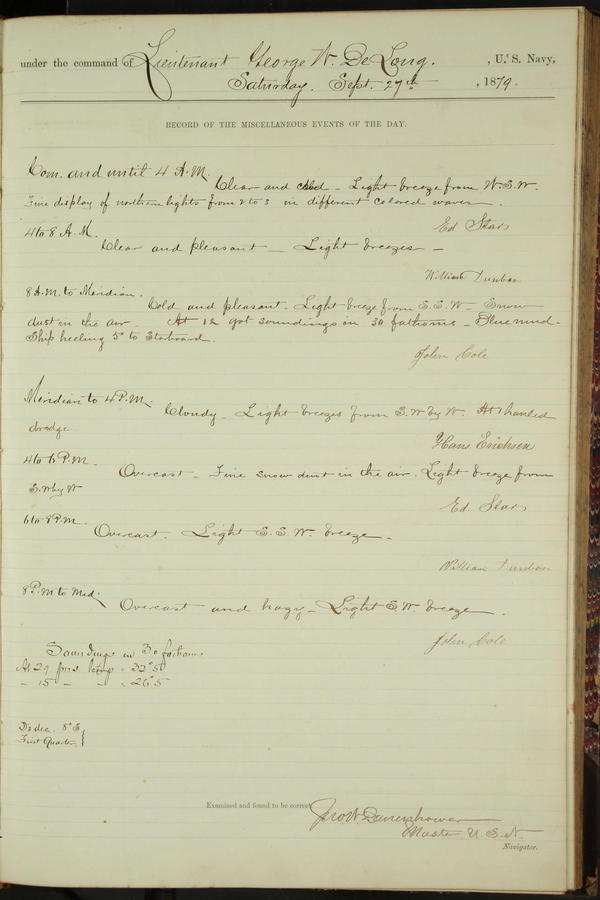 under the command of Lieutenant George W. De Long. , U. S. Navy,
Saturday. Sept. 27th , 1879.
RECORD OF THE MISCELLANEOUS EVENTS OF THE DAY.
Com. and until 4 A.M.
Clear and cold - Light breeze from W.S.W.
Fine display of northern lights from 2 to 3 in different colored waves.
Ed Star
4 to 8 A.M.
Clear and pleasant - Light breezes -
William Dunbar
8 A.M. to Meridian.
Cold and pleasant - Light breeze from S.S.W - Snow
dust in the air - At 12 got soundings in 30 fathoms - Blue mud -
Ship heeling 5° to Starboard.
John Cole
Meridian to 4 P.M.
Cloudy - Light breezes from S.W by W. At 1 hauled
dredge
Hans Erichsen
4 to 6 P.M.
Overcast - Fine snow dust in the air. Light breeze from
S.W by W
Ed. Star
6 to 8 P.M.
Overcast. Light S.S.W. breeze -
William Dunbar
8 P.M to Mid.
Overcast and hazy - Light S.W. breeze.
John Cole
Soundings in 30 fathoms
At 29 fms temp = 32°5
- 15 - - = 26°5
dec. 8° S
First Quarter
Examined and found to be correct
Jno W. Danenhower
Master U.S.N.
Navigator.